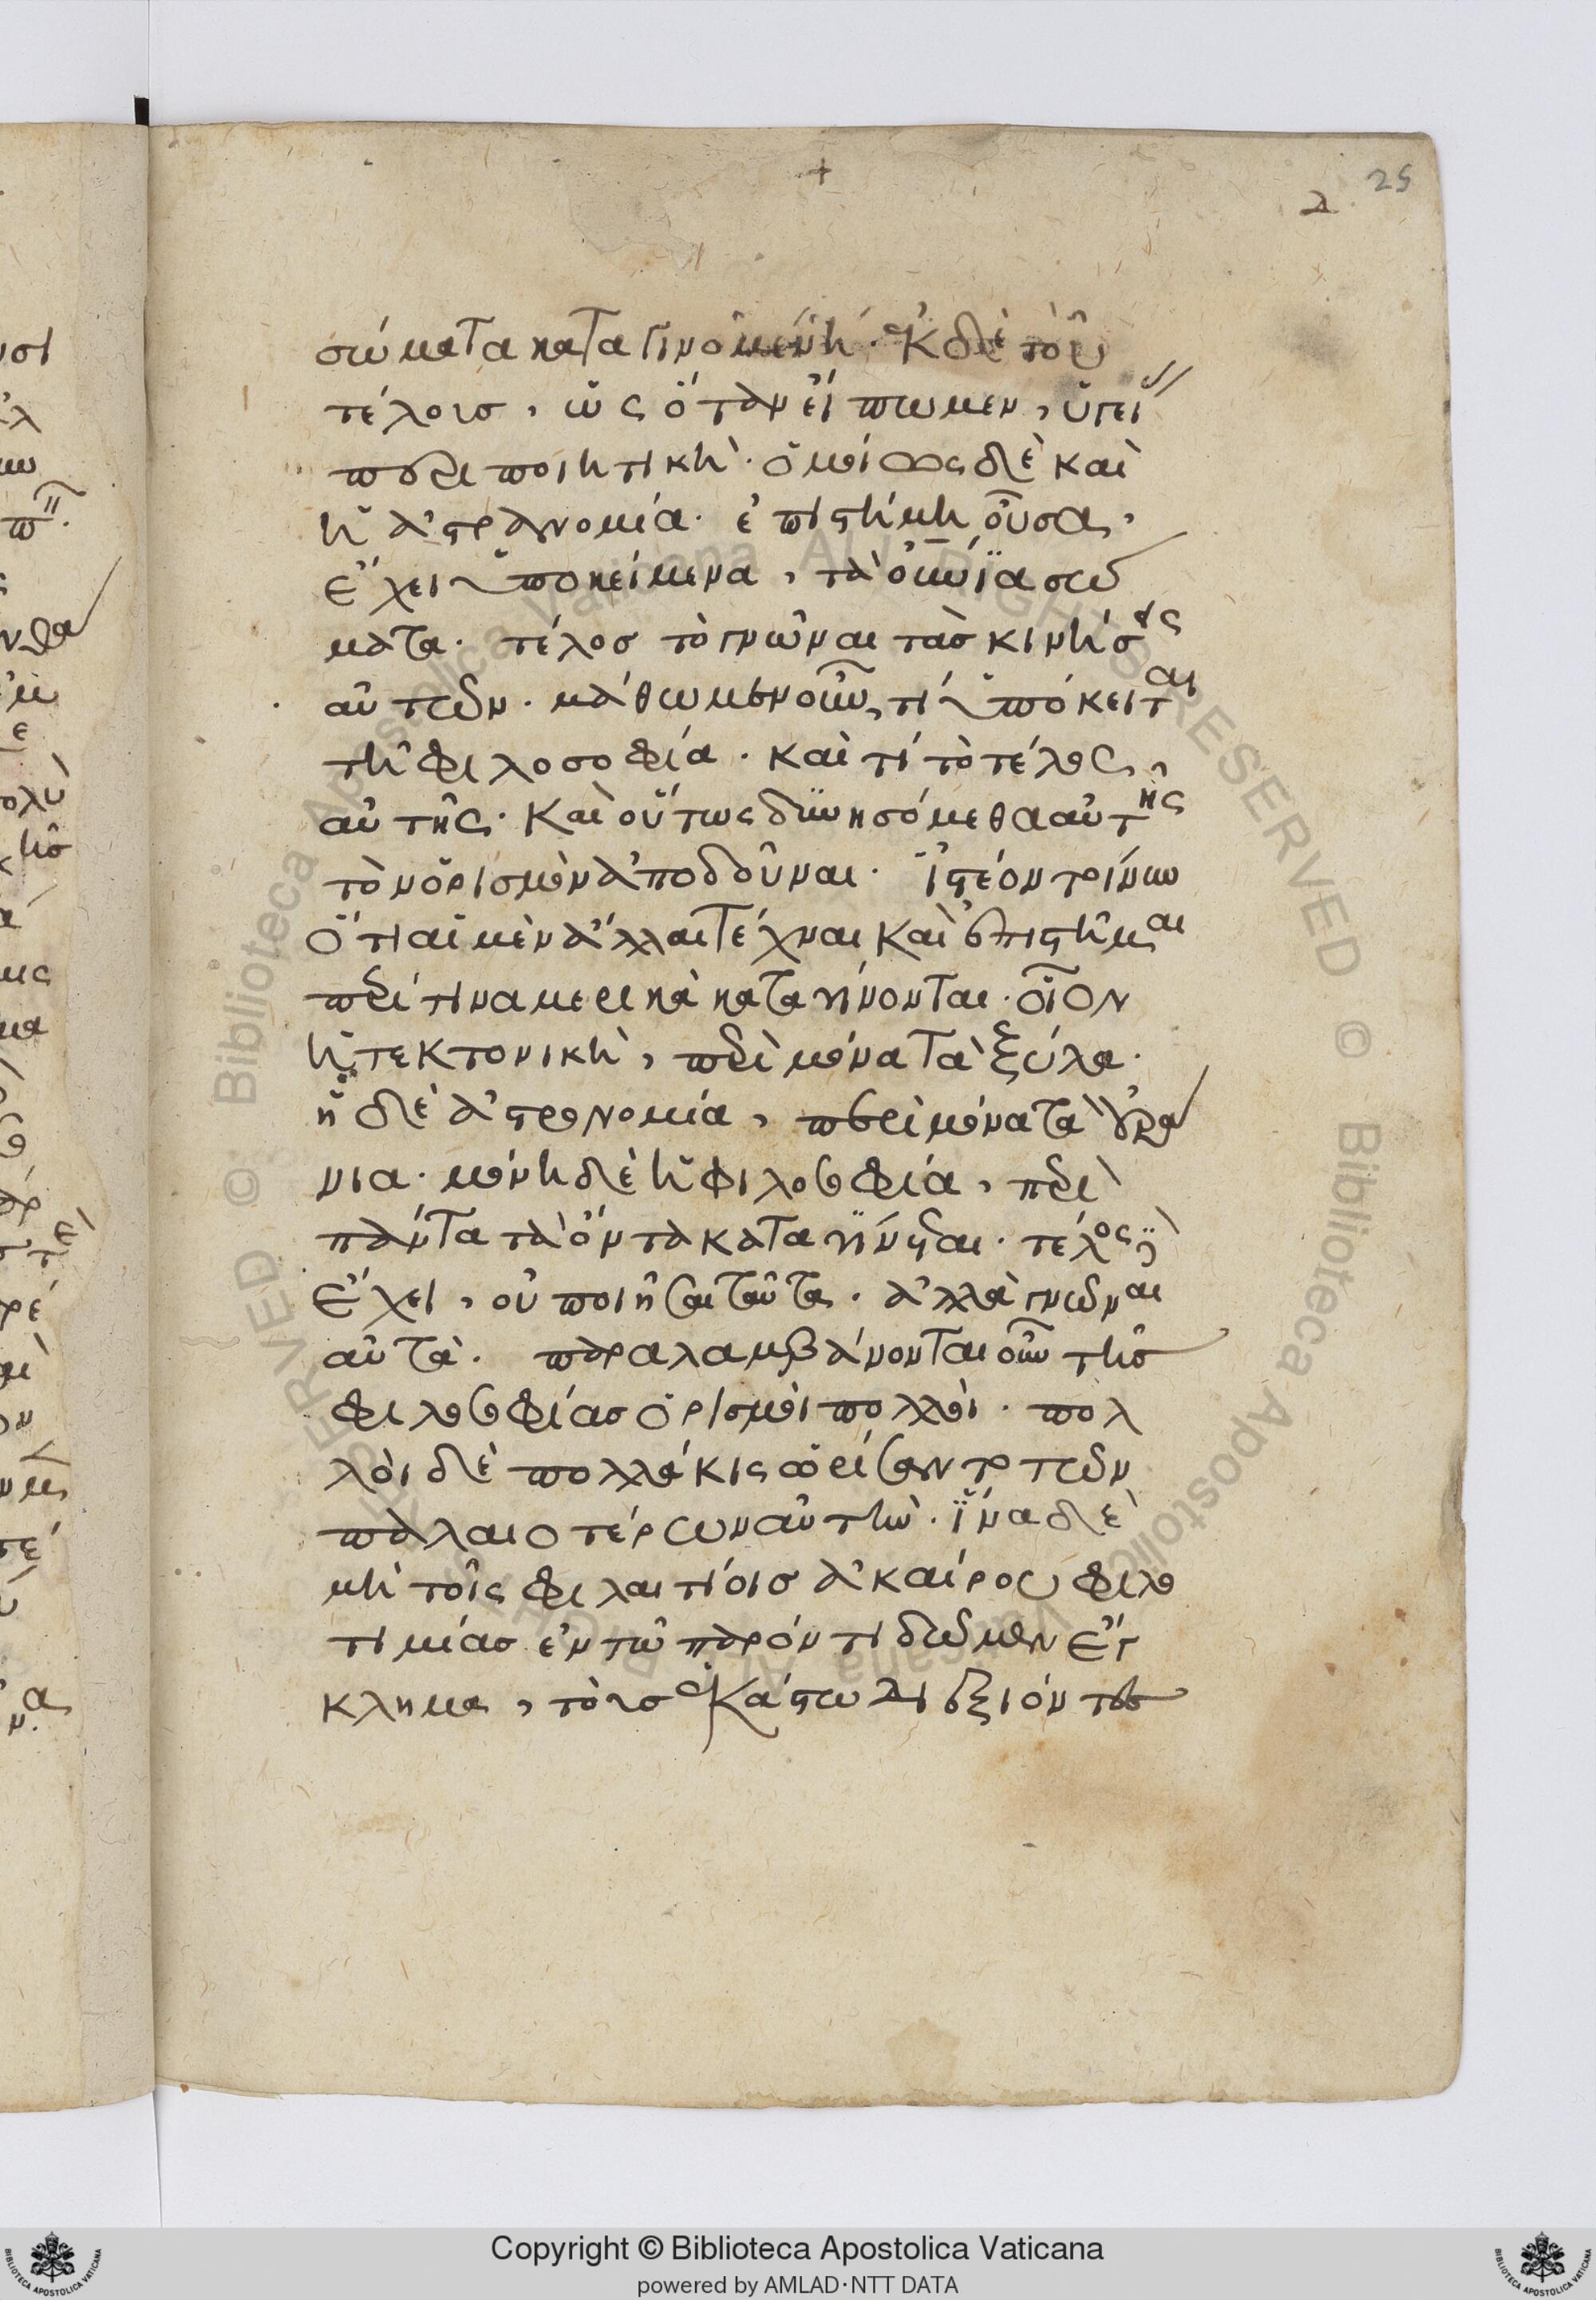 25
λ
σώματα καταγινομένη· ἐκ δὲ τοῦ
τέλους, ὡς ὅταν εἴπωμεν, ὑγεί
ας περιποιητική· ὁμοίως δὲ καὶ
ἡ ἀστρονομία· ἐπιστήμη οὖσα,
ἔχει ὑποκείμενα, τὰ οὐράνια σώ
ματα· τέλος τὸ γνῶναι τὰς κινήσεις
αὐτῶν· μάθωμεν οὖν, τί ὑπόκειται
τῆ φιλοσοφία· καὶ τί τὸ τέλος,
αὐτῆς· καὶ οὕτως δυνησόμεθα αὐτῆς
τὸν ὁρισμὸν ἀποδοῦναι· ἰστέον τοίνυν
ὅτι αἱ μὲν ἄλλαι τέχναι καὶ ἐπιστῆμαι
περί τινα μερικὰ καταγίνονται· οἷον
ἡ τεκτονικὴ, περὶ μόνα τὰ ξύλα·
ἡ δὲ ἀστρονομία, περὶ μόνα τὰ οὐρά
νια· μόνη δὲ ἡ φιλοσοφία, περὶ
πάντα τὰ ὄντα καταγίνεται· τέλος δὲ
ἔχει, οὐ ποιῆσαι ταῦτα· ἀλλὰ γνῶναι
αὐτά· παραλαμβάνονται οὖν τῆς
φιλοσοφίας ὁρισμοὶ πολλοί· πολ
λοὶ δὲ πολλάκις ὡρίσαντο τῶν
παλαιοτέρων αὐτήν· ἵνα δὲ
μὴ τοῖς φιλαιτίοις ἀκαίρου φιλο
τιμίας ἐν τῶ παρόντι δῶμεν ἔγ
κλημα, τοὺς ἑκάστω διεξιόντες
Copyright © Biblioteca Apostolica Vaticana
powered by AMLAD·NTT DATA